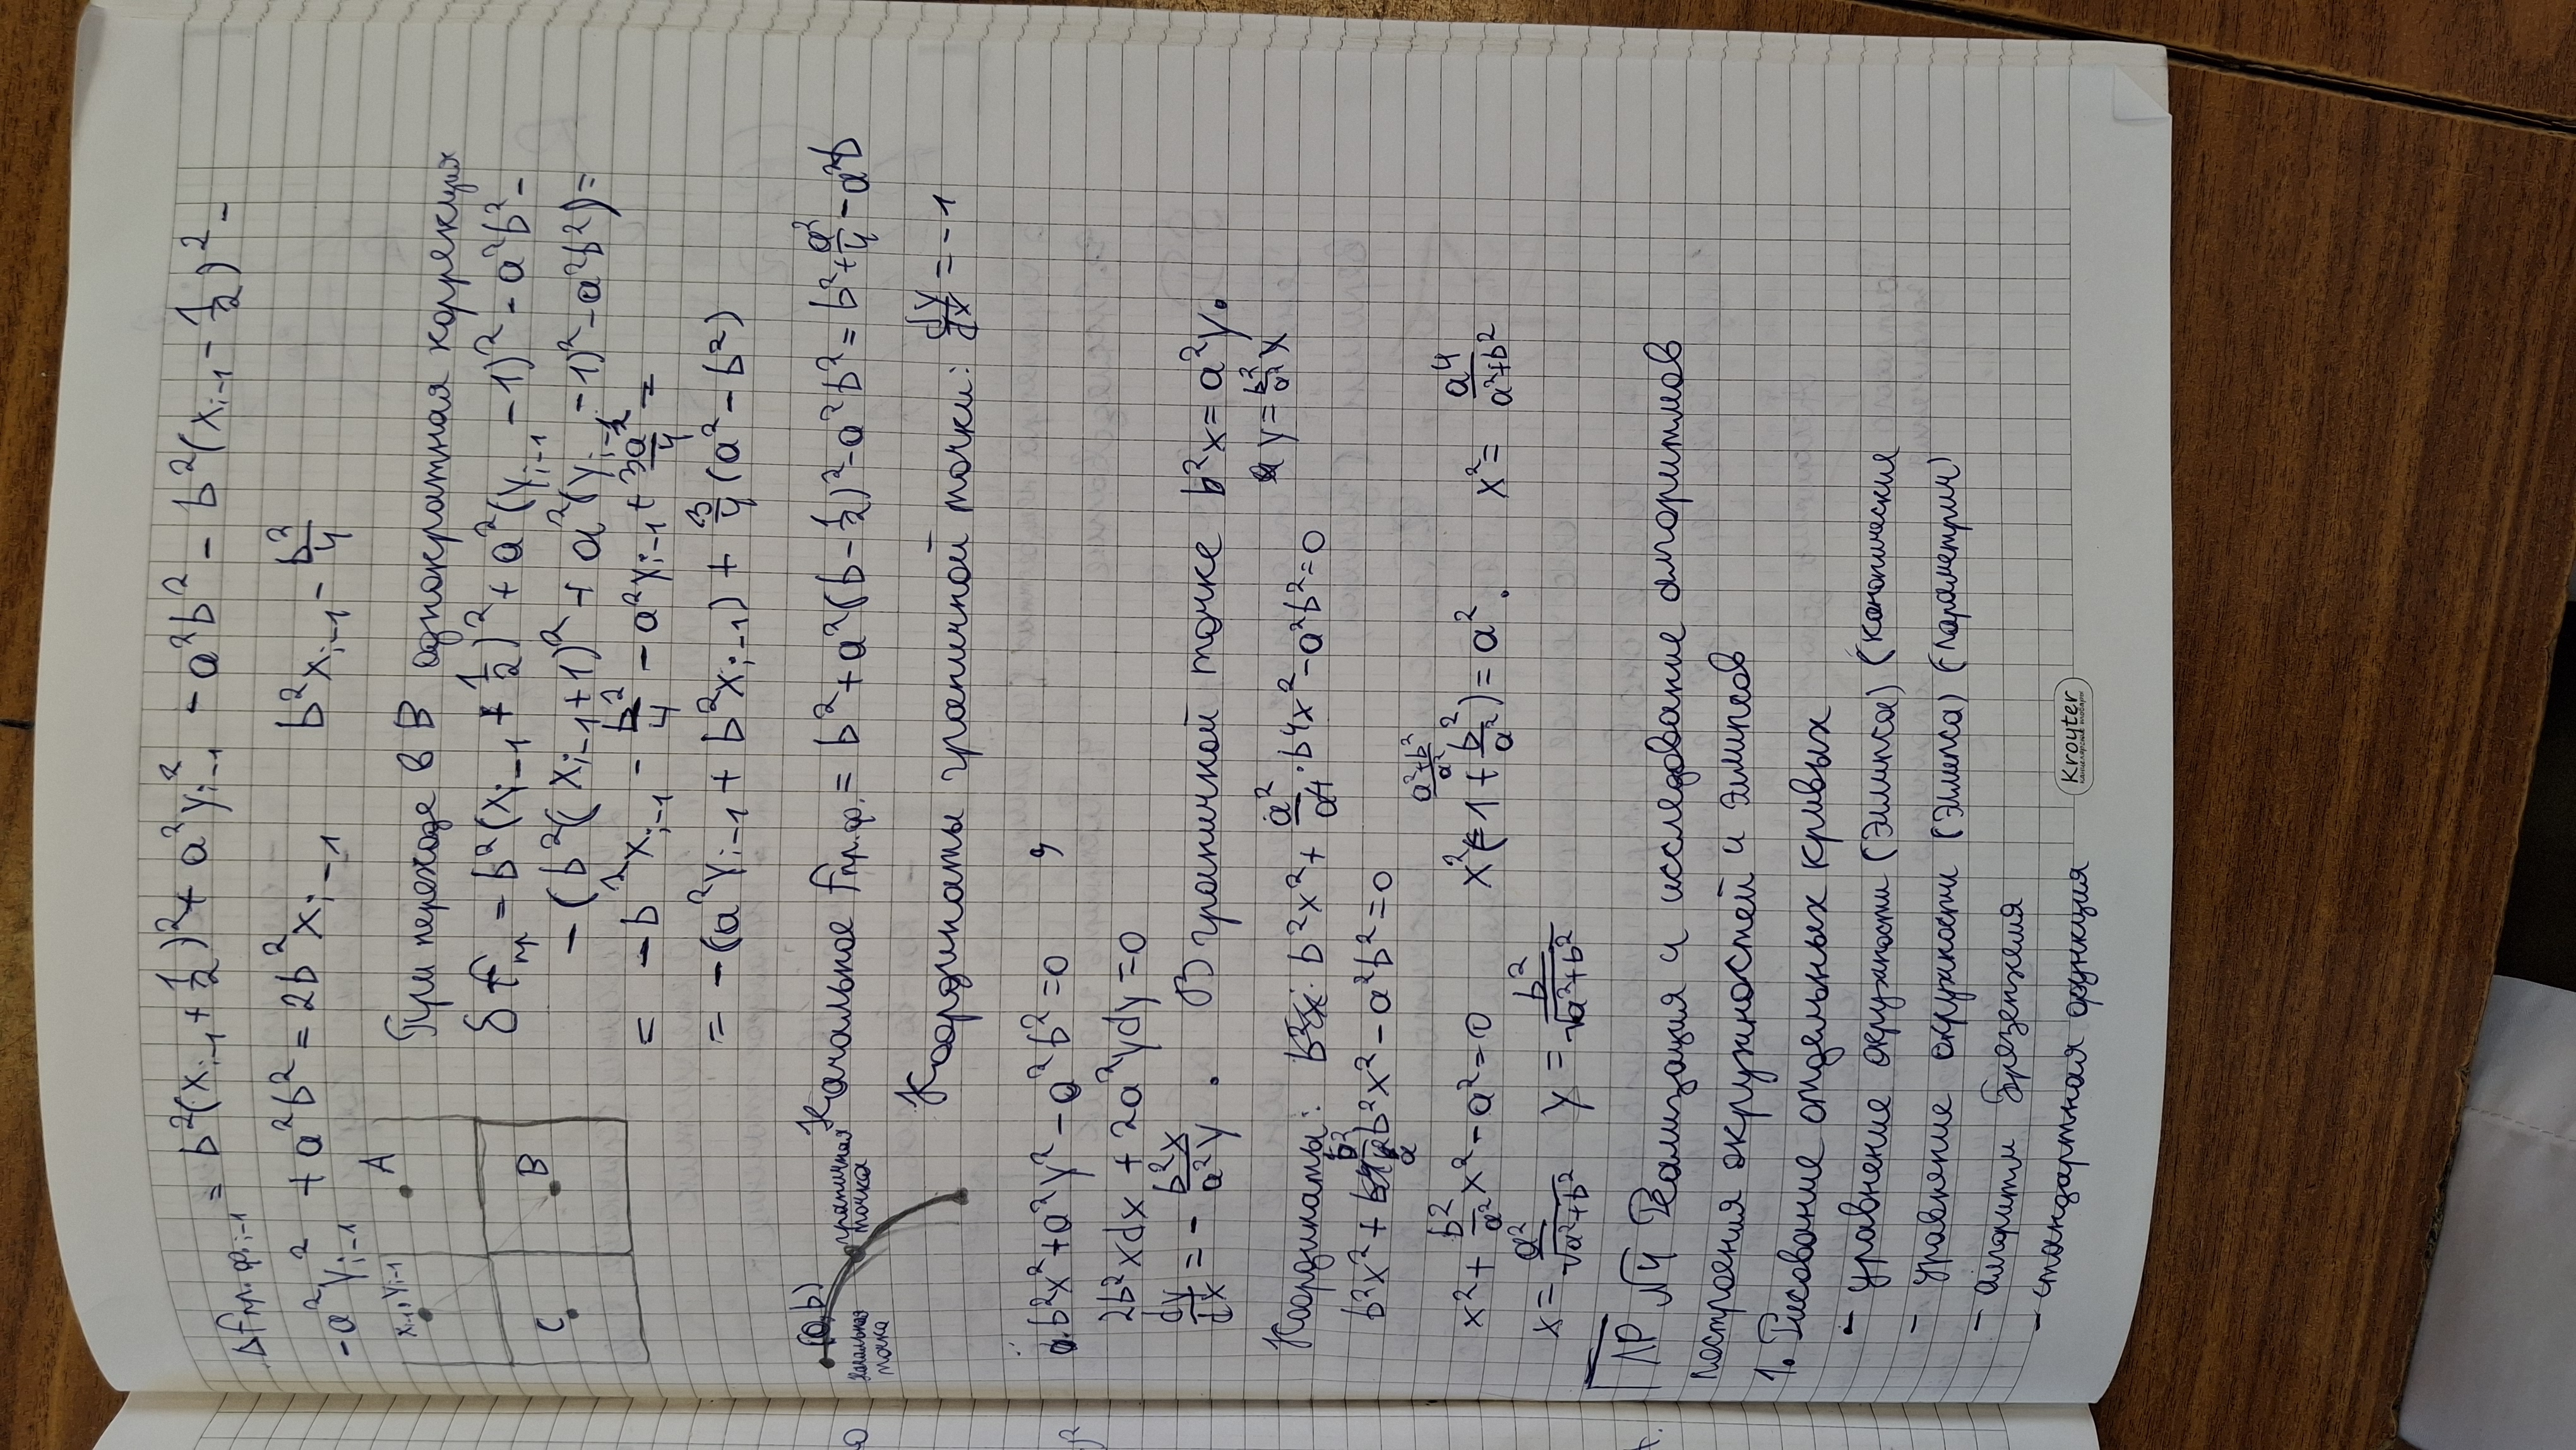 Δfпр.ф.i-1 = b²(xi-1 + 1/2)² + a²yi-1² - a²b² - b²(xi-1 - 1/2)² -
- a²yi-1² + a²b² = 2b²xi-1 b²xi-1 - b²/4
xi-1, yi-1 A
При переходе в B однократная коррекция
C B
δfпр = b²(xi-1 + 1/2)² + a²(yi-1 - 1)² - a²b² -
- (b²((xi-1+1)² + a²(yi-1 - 1)² - a²b²) =
= - b²xi-1 - b²/4 - a²yi-1 + 3a²/4 =
= - (a²yi-1 + b²xi-1) + 3/4 (a² - b²)
(0,b)
Начальная точка
граничная точка
Начальное fпр.ф. = b² + a²(b - 1/2)² - a²b² = b² + a²/4 - a²b
Координаты граничной точки: dy/dx = -1
b²x² + a²y² - a²b² = 0
2b²xdx + 2a²ydy = 0
dy/dx = - b²x/a²y . В граничной точке b²x = a²y.
y = b²/a² x
Координаты: b²x² + a²/a⁴ · b⁴x² - a²b² = 0
b²x² + b²/a² b²x² - a²b² = 0
x² + b²/a² x² - a² = 0 x²(1 + b²/a²) = a². x² = a⁴/(a²+b²)
(a²+b²)/a²
x = a²/√(a²+b²) y = b²/√(a²+b²)
ЛР №4 Реализация и исследование алгоритмов
построения окружностей и эллипсов
1. Рисование отдельных кривых
- уравнение окружности (Эллипса) (канонические
- уравнение окружности (Эллипса) (параметрич)
- алгоритм Брезенхема
- стандартная функция
Kroyter
канцелярские товары